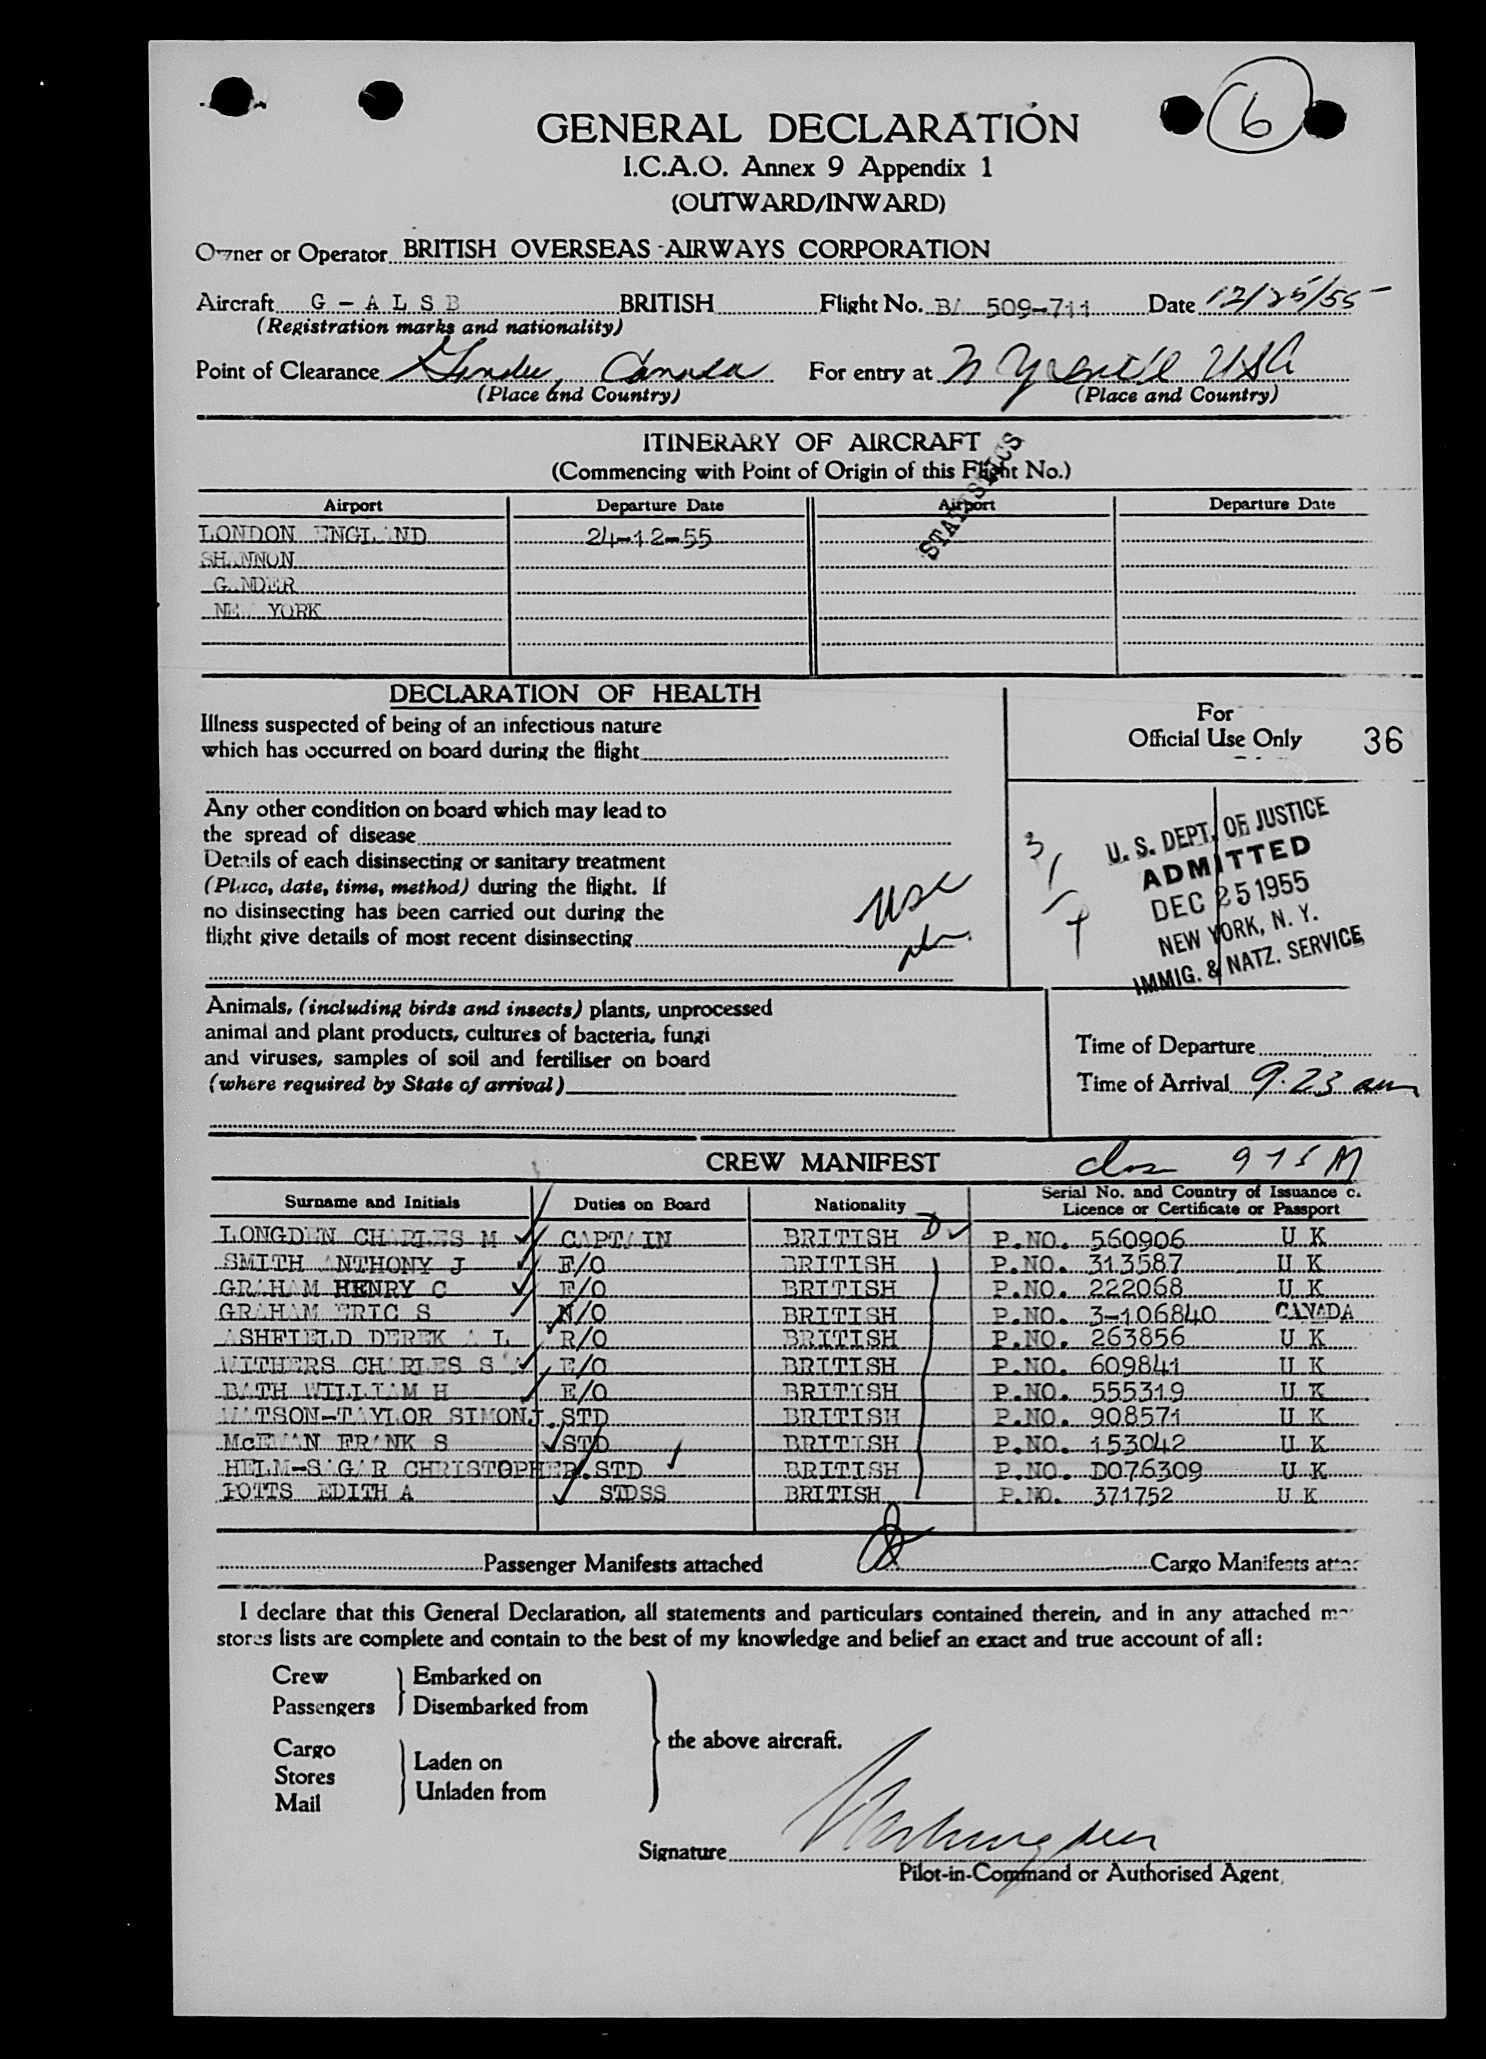 6
GENERAL DECLARATION
I.C.A.O. Annex 9 Appendix 1
(OUTWARD/INWARD)
Owner or Operator BRITISH OVERSEAS AIRWAYS CORPORATION
Aircraft G - A L S B BRITISH Flight No. BA 509-711 Date 12/25/55
(Registration marks and nationality)
Point of Clearance Gander, Canada For entry at N York USA
(Place and Country) (Place and Country)
ITINERARY OF AIRCRAFT
(Commencing with Point of Origin of this Flight No.)
STATISTICS
Airport Departure Date Airport Departure Date
LONDON ENGLAND 24-12-55
SHANNON
GANDER
NEW YORK
DECLARATION OF HEALTH
Illness suspected of being of an infectious nature
which has occurred on board during the flight
For
Official Use Only 36
Any other condition on board which may lead to
the spread of disease
Details of each disinsecting or sanitary treatment
(Place, date, time, method) during the flight. If
no disinsecting has been carried out during the
flight give details of most recent disinsecting
U. S. DEPT. OF JUSTICE
ADMITTED
DEC 25 1955
NEW YORK, N. Y.
IMMIG. & NATZ. SERVICE
Animals, (including birds and insects) plants, unprocessed
animal and plant products, cultures of bacteria, fungi
and viruses, samples of soil and fertiliser on board
(where required by State of arrival)
Time of Departure
Time of Arrival 9.23 am
CREW MANIFEST 975 M
Surname and Initials Duties on Board Nationality Serial No. and Country of Issuance of Licence or Certificate or Passport
LONGDEN CHARLES M CAPTAIN BRITISH P.NO. 560906 U K
SMITH ANTHONY J F/O BRITISH P.NO. 313587 U K
GRAHAM HENRY C F/O BRITISH P.NO. 222068 U K
GRAHAM ERIC S N/O BRITISH P.NO. 3-106840 CANADA
ASHFIELD DEREK A L R/O BRITISH P.NO. 263856 U K
WITHERS CHARLES S W E/O BRITISH P.NO. 609841 U K
BATH WILLIAM H E/O BRITISH P.NO. 555319 U K
WATSON-TAYLOR SIMON J. STD BRITISH P.NO. 908571 U K
McEWAN FRANK S STD BRITISH P.NO. 153042 U K
HELM-SAGAR CHRISTOPHER. STD BRITISH P.NO. D076309 U K
POTTS EDITH A STDSS BRITISH P.NO. 371752 U K
Passenger Manifests attached Cargo Manifests
I declare that this General Declaration, all statements and particulars contained therein, and in any attached
stores lists are complete and contain to the best of my knowledge and belief an exact and true account of all:
Crew Embarked on
Passengers Disembarked from
the above aircraft.
Cargo Laden on
Stores
Unladen from
Mail
Signature
Pilot-in-Command or Authorised Agent